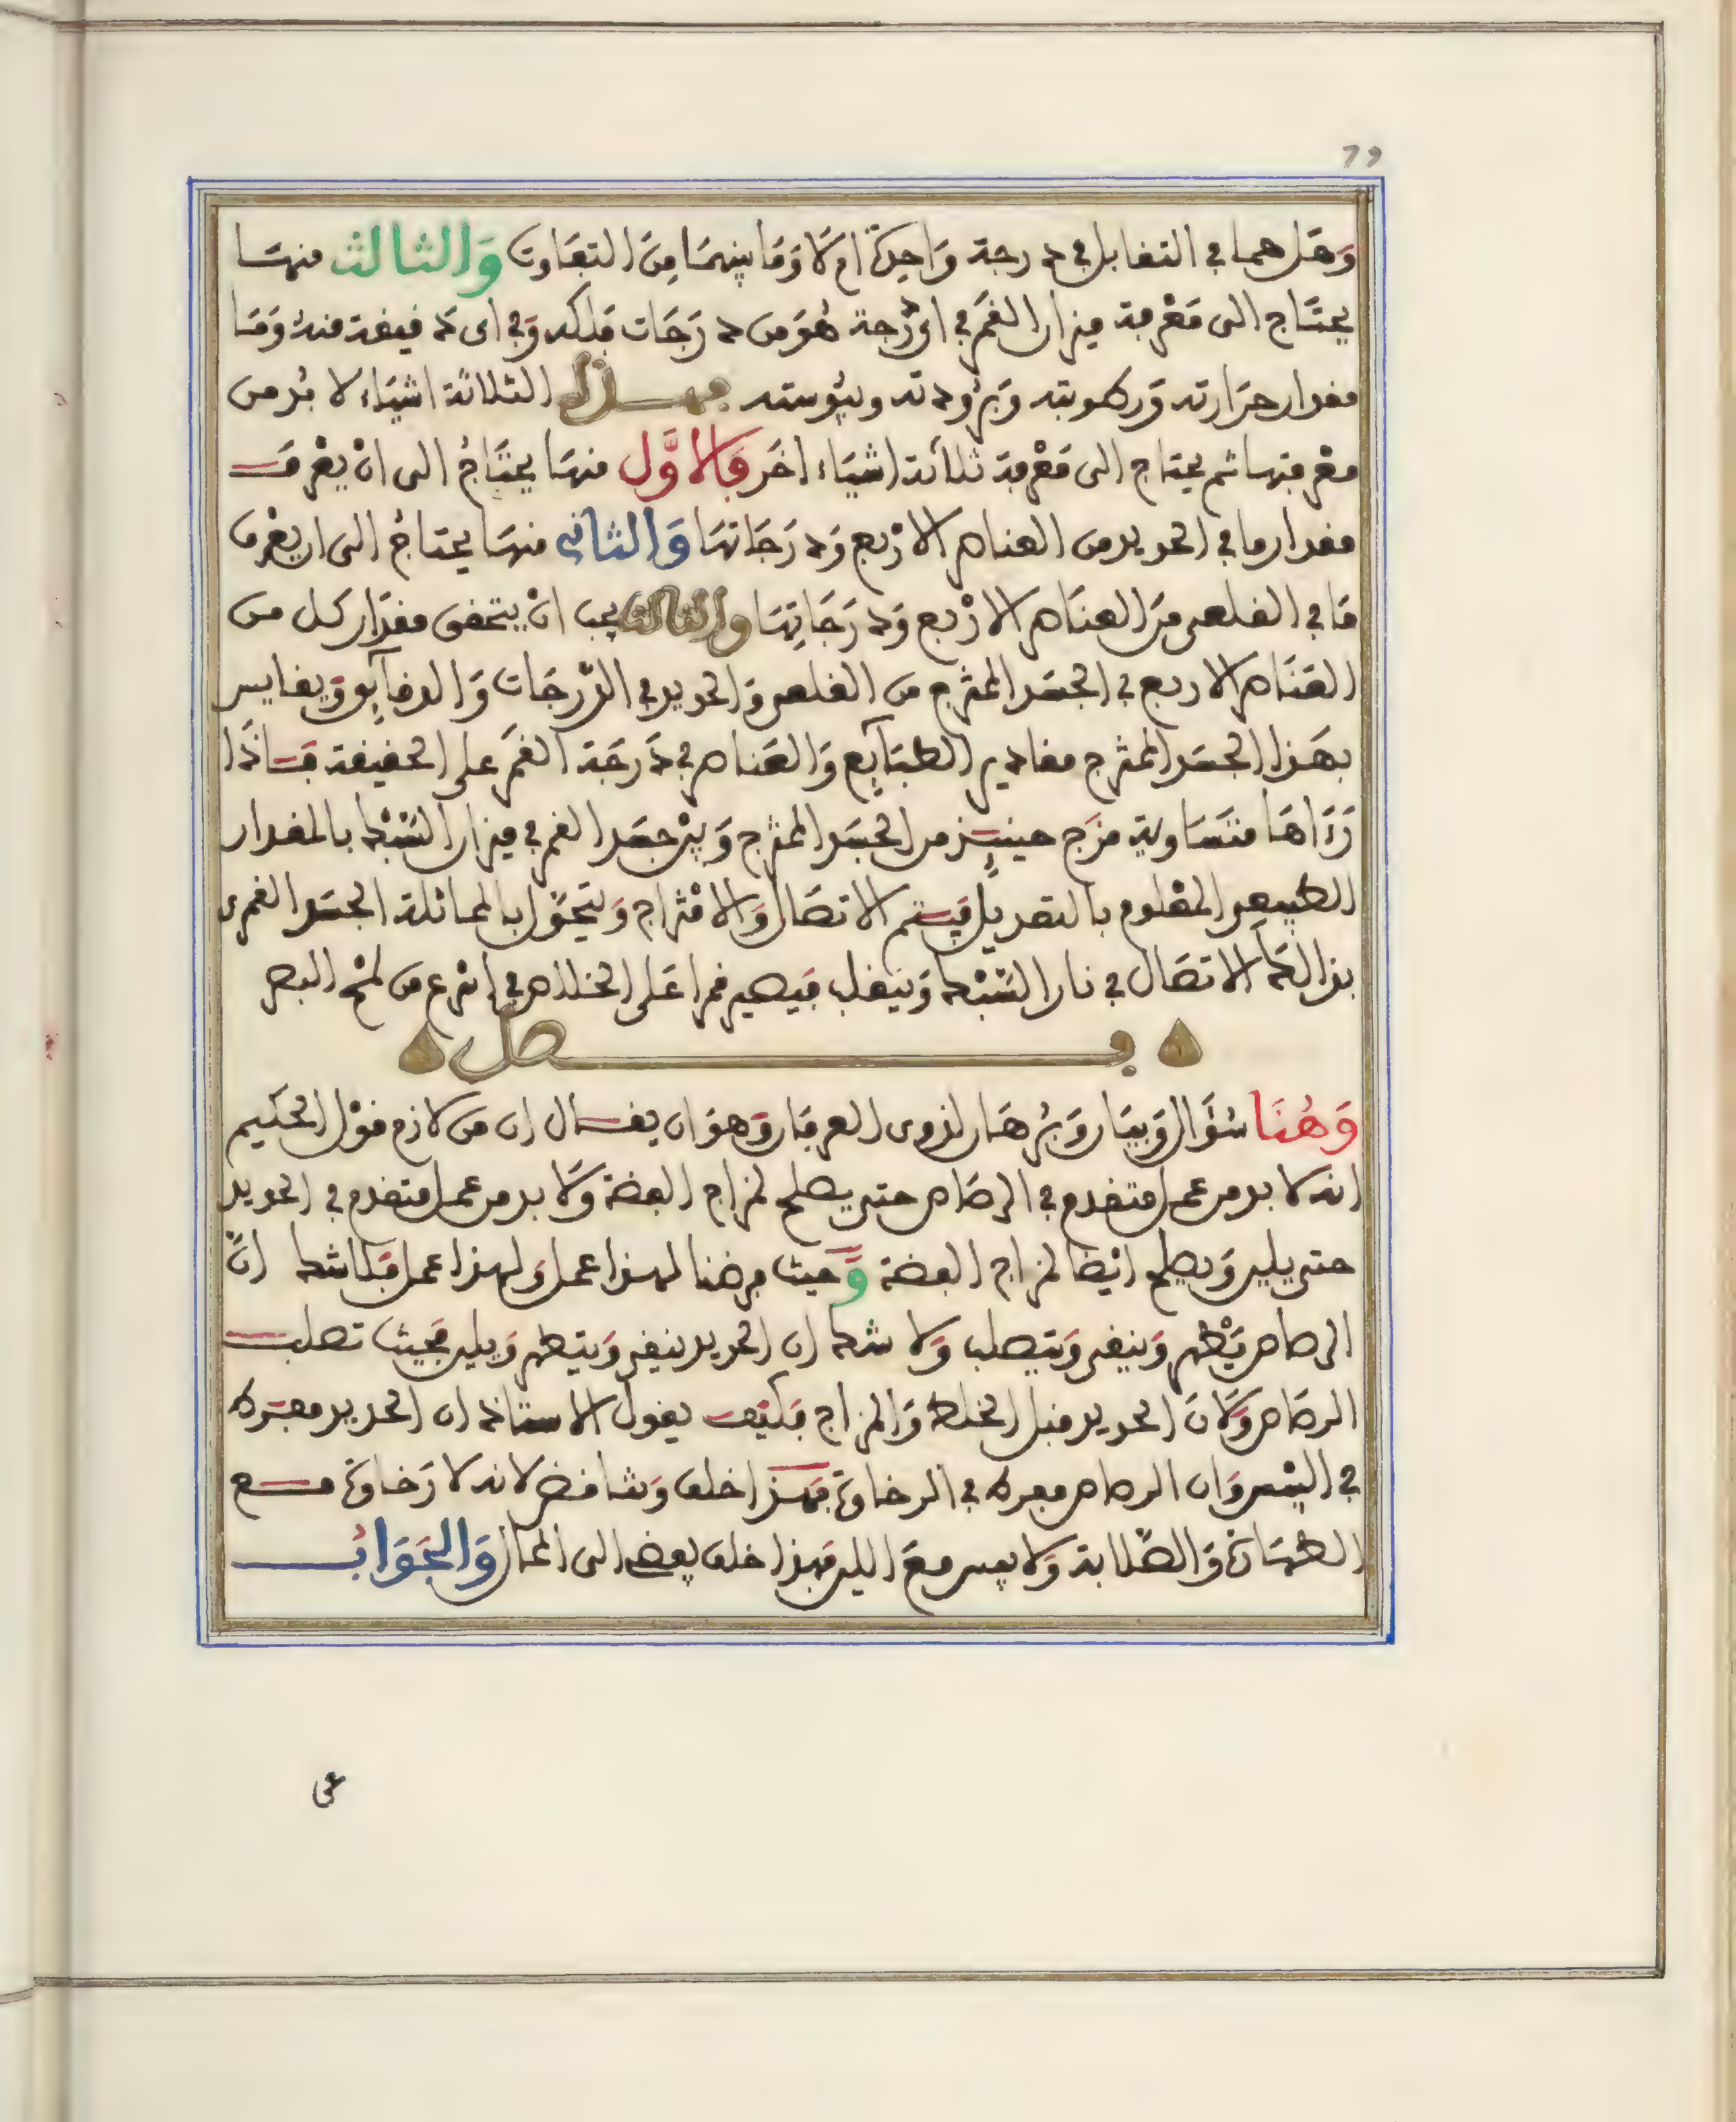 79
وَهَل هما في التقابل في درجة وَاحِدَة ام لَا وَمَا بينهمَا مِنَ التفَاوت وَالثالث منهَا
يحتَاج الى مَعْرفة ميزان القمَر في اي دَرجة هُوَ من دَرَجَات فلكه وَفي اى دَقيقة منهُ وَمَا
مقدار حرَارته وَرطوبته وَبرُودته ويبُوسته فهــذه الثلاثة اشيَاء لا بُد من
معْرفتها ثم يحتاج الى مَعْرفة ثلاثة اشيَاء اخَر فَالاوَّل منهَا يحتَاجُ الى انْ يعْرفَ
مقدار ما في الحديد من العناصر الارْبع وَدرَجَاتهَا وَالثاني منهَا يحتاجُ الى ان يعْرف
مَا في القلعى مِنَ العنَاصر الارْبع وَدرَجَاتِهَا والثالث يجب انْ يتحقق مقدَار كل من
العَنَاصر الاربع في الجسَد الممتزج من القلعى وَالحديد في الدَّرجَات وَالدقايق وَيقايس
بهَذا الجسَد الممتزج مقادير الطبَايِع وَالعَناصر في دَرجَة القمَر على الحقيقة فَاذَا
رَءَاهَا متسَاوية مزَج حينيِذ من الجسَد الممتزج وَبيْن جسَد القمر في ميزان السَّبْك بالمقدار
الطبيعى المعْلوم بالتعديل فيَتم الاتصَال وَالامْتزاج وَيتحَوّل بالمماثلة الجسَد القمرى
بذالكَ الاتصَال في نار السَّبْك وَينقلب فيَصير قمرا عَلى الخلاص في اسْرع من لمْح البصر
فــصل
وَهُنَا سُؤَال وَبيَان وَبُرهَان لذوى العرفَان وَهوَ ان يقــال ان من لازم قوْل الحكيم
انه لا بد من عمل متقدم في الرصَاص حتى يصلح لمزاج الفضة وَلَا بد من عمل متقدم في الحديد
حتى يلين وَيصلح ايْضا لمزاج الفضة وَّحيث فرضنا لهذا عمل وَلهذا عمل فَلا شك انَّ
الرصاص يَطْهر وَينقى وَيتصلب وَلا شك ان الحديد ينقى وَيتطهر وَيلين فحيث تصلب
الرصَاص وَلَانَ الحديد قبل الخلط وَالمزاج فكيْف يقول الاستاذ ان الحديد مفرَط
في اليبْس وَان الرصاص مفرط في الرخاوة فهَـذا خلف وَتناقض لانه لا رَخاوة مــع
الطهَارة وَالصَّلابة وَلا يبس معَ اللين فهذا خلف يفضى الى المحال وَالجَوَابُ
عن